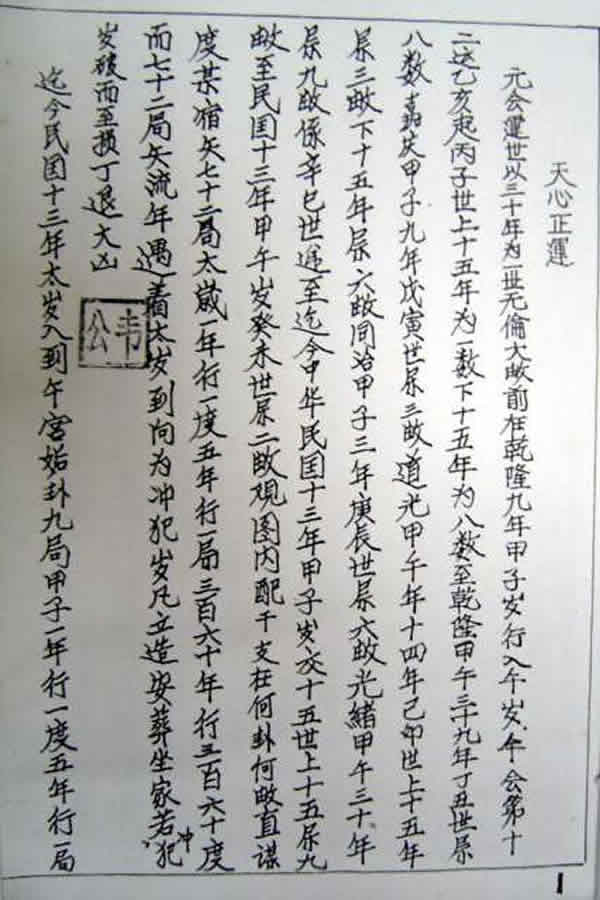 天心正運
元会運世以三十年为一世无倫大畝前在乾隆九年甲子岁行入午岁午会第十
二运乙亥起丙子世上十五年为一数下十五年为八数至乾隆甲午三十九年丁丑世屌
八数嘉庆甲子九年戊寅世屌三畝道光甲午年十四年己卯世上十五年
屌三畝下十五年屌六畝同治甲子三年庚辰世屌六畝光緒甲午三十年
屌九畝係辛巳世遞至迄今中华民国十三年甲子岁交十五世上十五屌九
畝至民国十三年甲午岁癸未世屌二畝观图内配干支在何卦何畝直谋
度某宿矢七十二局太歲一年行一度五年行一局三百六十年行三百六十度
而七十二局矢流年遇着太岁到向为冲犯岁凡立造安葬坐家若冲犯
岁破而至损丁退大凶
迄今民国十三年太岁入到午宫姤卦九局甲子一年行一度五年行一局
韦公
1